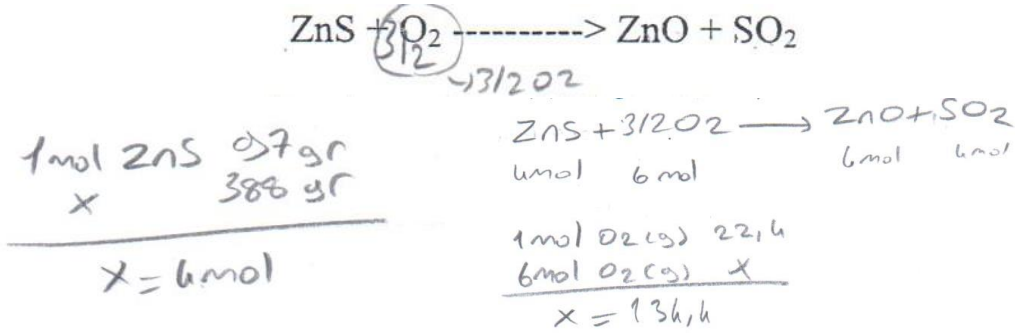 ZnS + 3/2 O2 ----------> ZnO + SO2
→3/2O2
1mol ZnS 97gr
x 388 gr
x = 4mol
ZnS + 3/2O2 → ZnO + SO2
4mol 6 mol 4mol 4mol
1mol O2(g) 22,4
6mol O2(g) x
x = 134,4